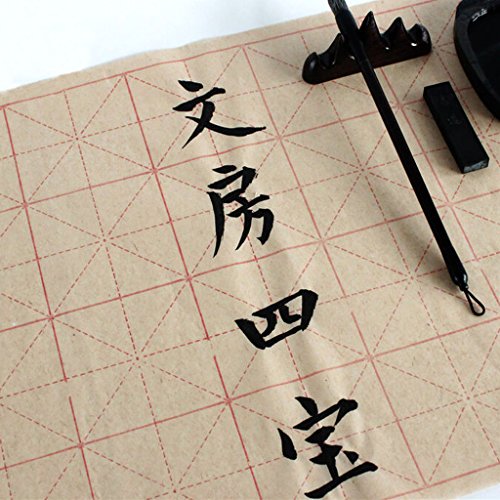 文房四宝